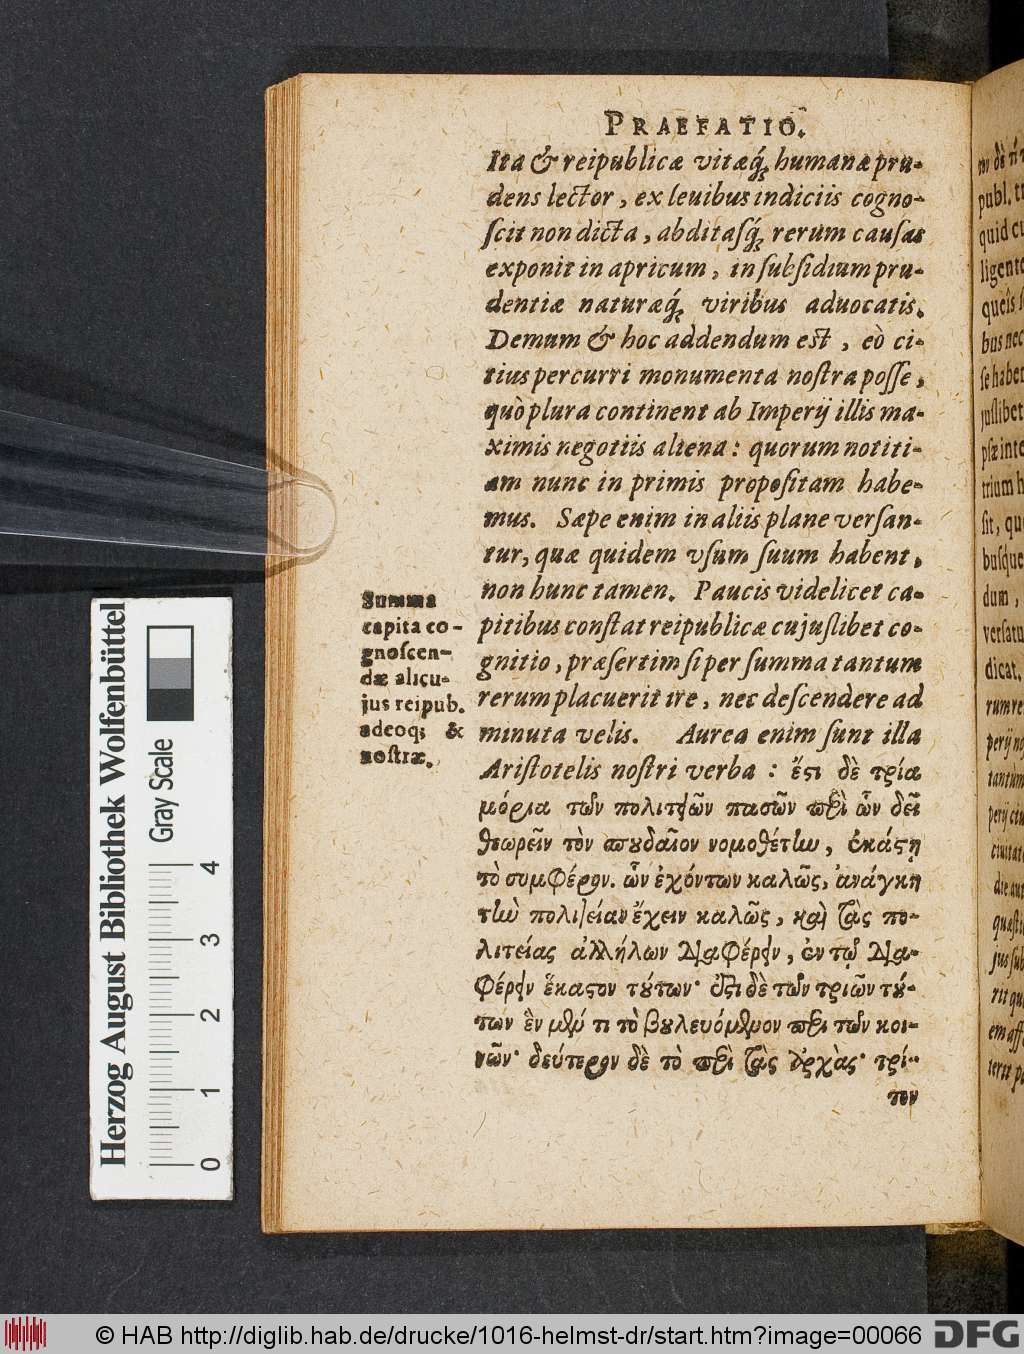 PRAEFATIO.
Ita & reipublicæ vitæq́; humanæ pru-
dens lector, ex leuibus indiciis cogno-
ſcit non dicta, abditaſq́; rerum cauſas
exponit in apricum, in ſubſidium pru-
dentiæ naturæq́; viribus aduocatis.
Demum & hoc addendum est, eò ci-
tius percurri monumenta noſtra poſſe,
quò plura continent ab Imperij illis ma-
ximis negotiis aliena: quorum notiti-
am nunc in primis propoſitam habe-
mus. Sæpe enim in aliis plane verſan-
tur, quæ quidem vſum ſuum habent,
non hunc tamen. Paucis videlicet ca-
pitibus conſtat reipublicæ cujuſlibet co-
gnitio, præſertim ſi per ſumma tantum
rerum placuerit ire, nec deſcendere ad
minuta velis. Aurea enim ſunt illa
Ariſtotelis noſtri verba: ἔϛι δὲ τρία
μόρια τῶν πολιτειῶν πασῶν περὶ ὧν δεῖ
θεωρεῖν τὸν σπουδαῖον νομοθέτην, ἑκάϛῃ
τὸ συμφέρον. ὧν ἐχόντων καλῶς, ἀνάγκη
τὴν πολιτείαν ἔχειν καλῶς, καὶ τὰς πο-
λιτείας ἀλλήλων διαφέρειν, ἐν τῷ δια-
φέρειν ἕκαϛον τούτων· ἔϛι δὲ τῶν τριῶν τού-
των ἓν μέν τι τὸ βουλευόμενον περὶ τῶν κοι-
νῶν· δεύτερον δὲ τὸ περὶ τὰς ἀρχὰς· τρί-
τον
Summa
capita co-
gnoſcen-
dæ alicu-
jus reipub.
adeoq; &
noſtræ.
τον δὲ τί
publ.
quid cu
ligente
queis ſ
bus nec
ſe habet
juſlibet
pſæ inte
trium h
ſit, qu
buſque
dum,
verſatu
dicat.
rum re
perij no
tantùm
perij ciu
ciuitat
die au
quæſti
jus ſub
rit qu
em aff
terit p
Herzog August Bibliothek Wolfenbüttel
Gray Scale
0 1 2 3 4
© HAB http://diglib.hab.de/drucke/1016-helmst-dr/start.htm?image=00066
DFG